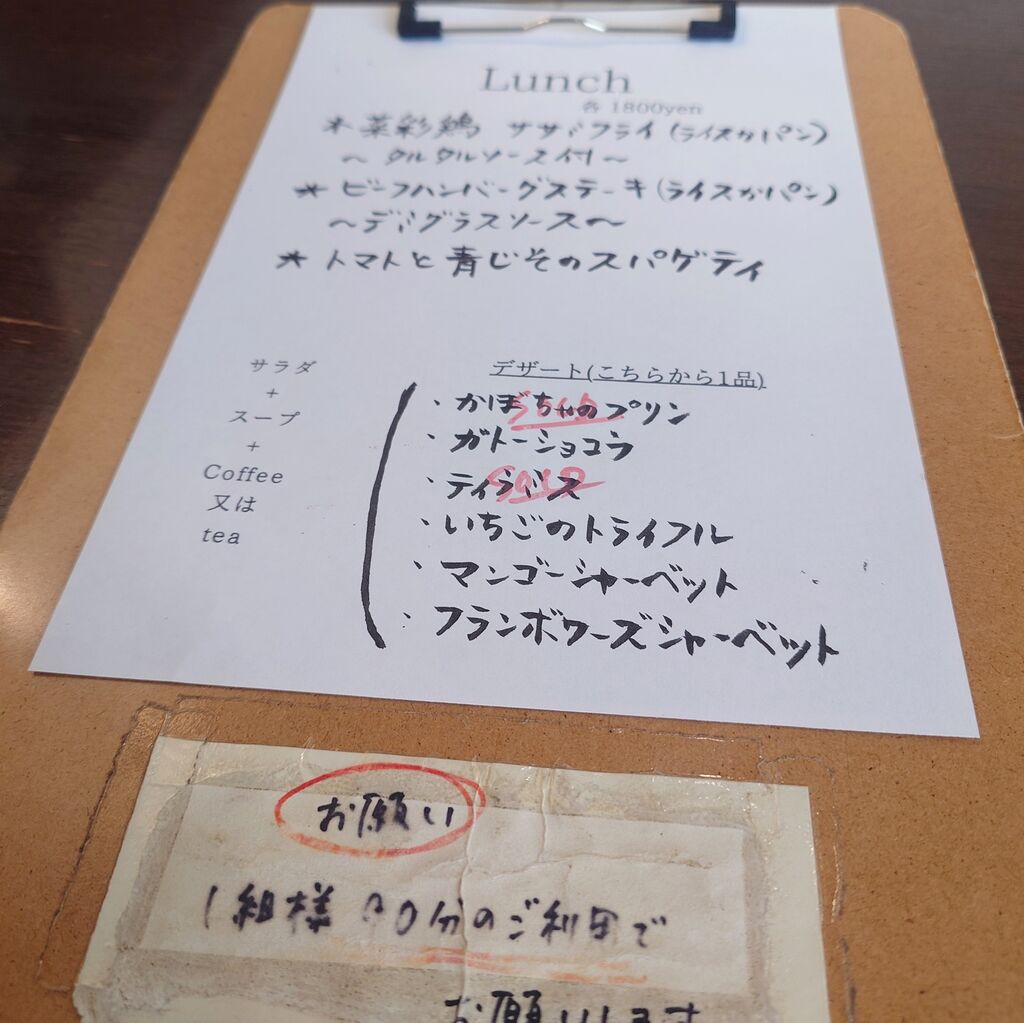 Lunch
各 1800yen
* 菜彩鶏 ササミフライ(ライスかパン)
〜タルタルソース付〜
* ビーフハンバーグステーキ(ライスかパン)
〜デミグラスソース〜
* トマトと青じそのスパゲティ
サラダ
+
スープ
+
Coffee
又は
tea
デザート(こちらから1品)
・かぼちゃのプリン
・ガトーショコラ
・ティラミス
・いちごのトライフル
・マンゴーシャーベット
・フランボワーズシャーベット
お願い
1組様 90分のご利用で
お願いします